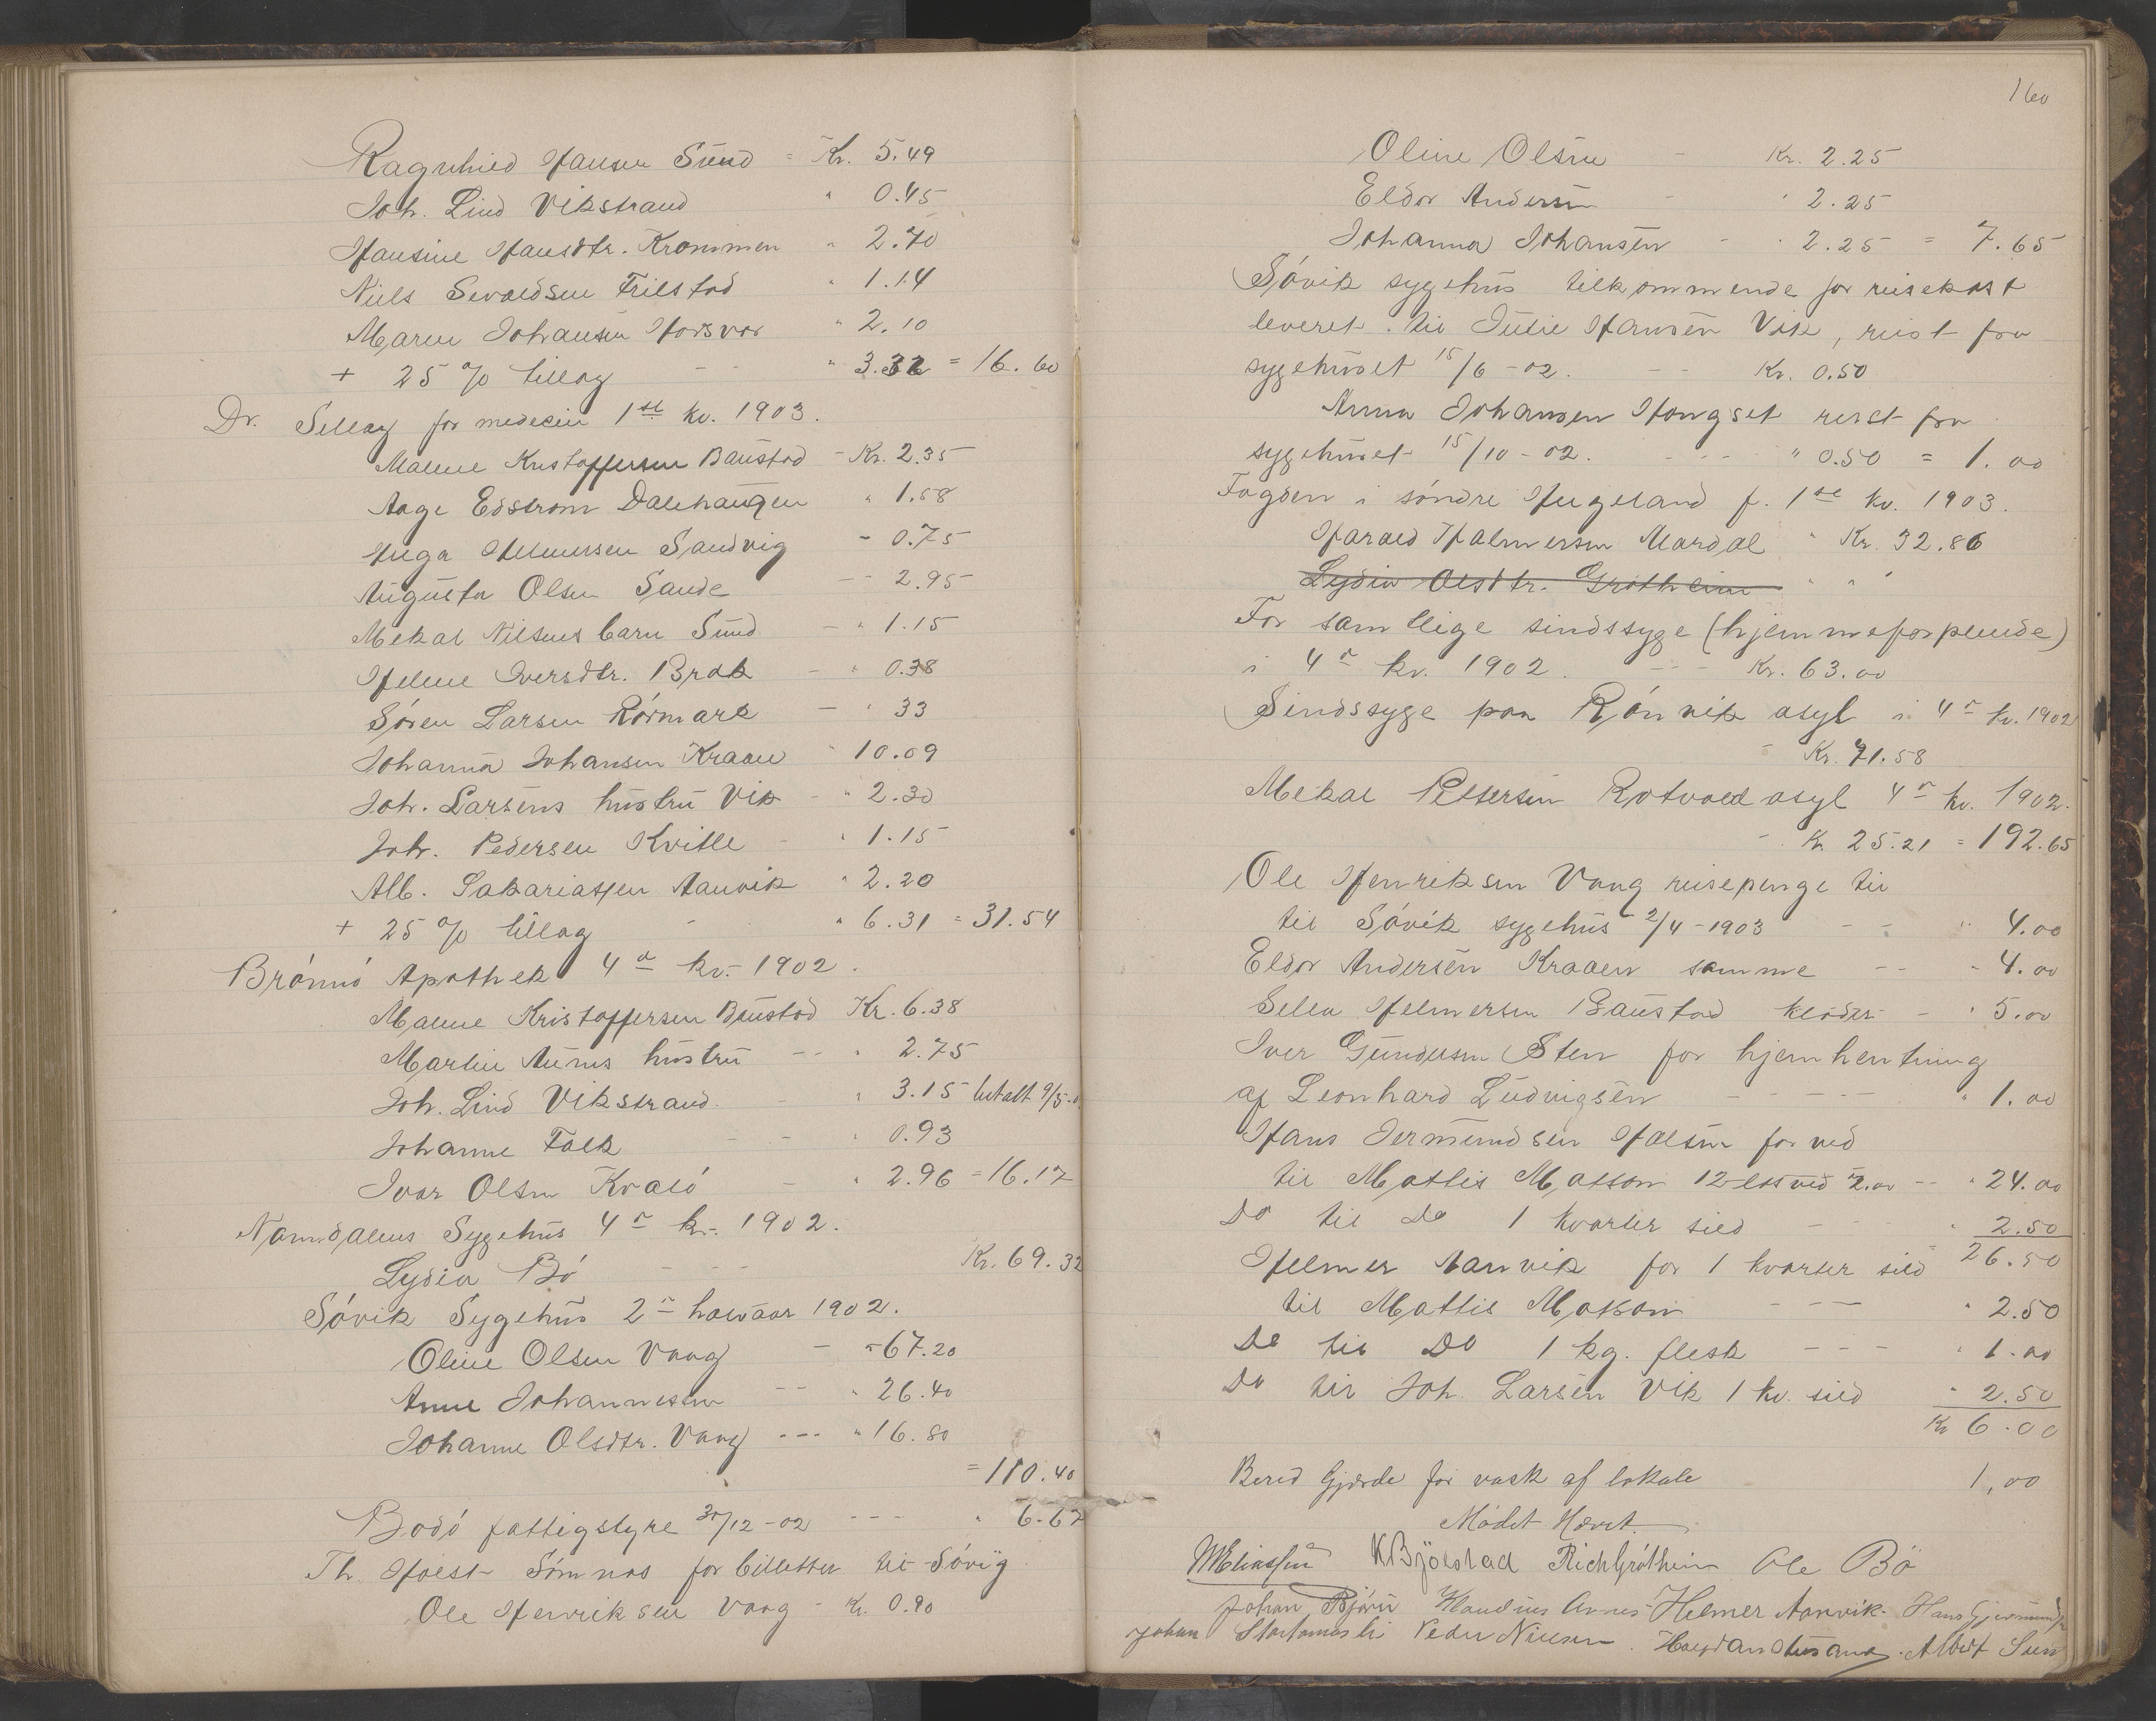 Ragnhild Hansen Sund = Kr. 5.49
Joh. Lind Vikstrand " 0.45
Hansine Hansdtr. Krommen " 2.70
Niels Sevaldsen Trilstad " 1.14
Maren Johansen Horsver " 2.10
+ 25 % tillæg - - " 3.32 = 16.60
Dr. Selløy for medecin 1ste kv. 1903.
Malene Kristoffersen Baustad - Kr. 2.35
Aage Edstrøm Dalehaugen " 1.58
Inga Helmersen Sandvig - 0.75
Augusta Olsen Sande - - 2.95
Mekal Nilsens barn Sund - " 1.15
Helene Iversdtr. Brak - " 0.38
Søren Larsen Rørmark - " 33
Johanna Johansen Kraaen " 10.09
Joh. Larsens hustru Vik - " 2.30
Joh. Pedersen Kville - " 1.15
Alb. Sakariassen Aanvik " 2.20
+ 25 % tillæg - " 6.31 = 31.54
Brønnø Apothek 4de kv. 1902.
Malene Kristoffersen Baustad Kr. 6.38
Martin Aunes hustru - - " 2.75
Joh. Lind Vikstrand. - " 3.15 betalt 9/5-0
Johanne Falk - - " 0.93
Ivar Olsen Kvalø - " 2.96 = 16.17
Namdalens Sygehus 4de kv. 1902.
Lydia Bø - - - Kr. 69.32
Søvik Sygehus 2det halvaar 1902.
Oline Olsen Vaag - " 67.20
Anne Johannessen - - " 26.40
Johanne Olsdtr. Vaag - - - " 16.80
= 110.40
Bodø fattigstyre 31/12-02 - - - " 6.67
Th. Holst Sømnes for billetter til Søvig
Ole Henriksen Vaag - Kr. 0.90
160
Oline Olsen - Kr. 2.25
Eldor Andersen - " 2.25
Johanna Johansen - " 2.25 = 7.65
Søvik sygehus tilkommende for reisekost
leveret til Julie Hansen Vik, reist fra
sygehuset 15/6-02. - - Kr. 0.50
Anna Johansen Hongset reist fra
sygehuset 15/10-02. - - - " 0.50 = 1.00
Fogden i søndre Helgeland f. 1ste kv. 1903.
Harald Halmersen Mardal " Kr. 32.86
Lydia Olsdtr. Grøtheim " " "
For samtlige sindssyge (hjemmeforpleiede)
i 4de kv. 1902. - - - Kr. 63.00
Sindssyge paa Rønvik asyl i 4de kv. 1902
- Kr. 71.58
Mekal Pettersen Rotvold asyl 4de kv. 1902.
- Kr. 25.21 = 192.65
Ole Henriksen Vaag reisepenge til
til Søvik sygehus 2/4-1903 - - " 4.00
Eldor Andersen Kraaen samme - - " 4.00
Helmersen Baustad klæder - " 5.00
Iver Gundersen Sten for hjemhentning
af Leonhard Ludvigsen - - - - - " 1.00
Hans Jermundsen Holsen for ved
til Mattis Matson 12 læs ved 2.00 - - " 24.00
Do til Do 1 kvarter sild - - " 2.50
26.50
Helmer Aanvik for 1 kvarter sild
til Mattis Matson - - - " 2.50
Do til Do 1 kg. flesk - - - " 1.00
Do til Joh. Larsen Vik 1 kv. sild " 2.50
Kr 6.00
Bered Gjærde for vask af lokale 1,00
Mødet Hævet.
M Eliassen K Bjølstad Rich Grøtheim Ole Bø
Johan Bjørn Klaudius Arnes Helmer Aanvik. Hans Gjermunds
Johan Peder Nilsen. Albert Sund